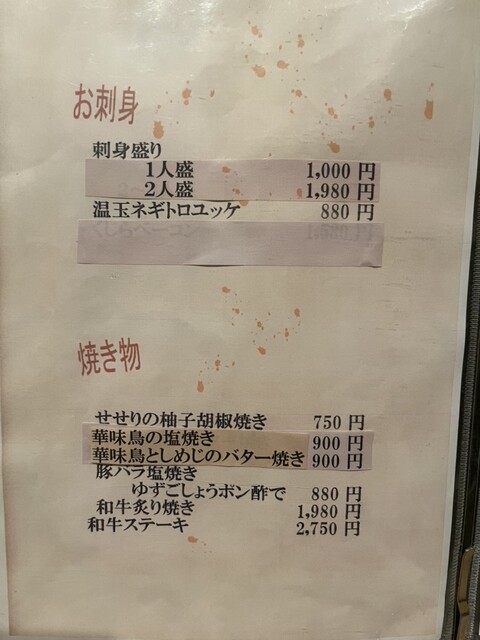 お刺身
刺身盛り
1人盛 1,000 円
2人盛 1,980 円
温玉ネギトロユッケ 880 円
くじらベーコン
焼き物
せせりの柚子胡椒焼き 750 円
華味鳥の塩焼き 900 円
華味鳥としめじのバター焼き 900 円
豚バラ塩焼き
ゆずごしょうポン酢で 880 円
和牛炙り焼き 1,980 円
和牛ステーキ 2,750 円